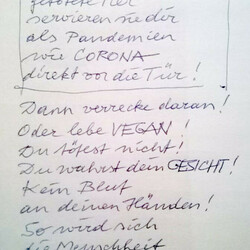 servieren sie dir
als Pandemien
wie CORONA
direkt vor die Tür!
Dann verrecke daran!
Oder lebe VEGAN!
Du tötest nicht!
Du wahrst dein GESICHT!
Kein Blut
an deinen Händen!
So wird sich
die Menschheit